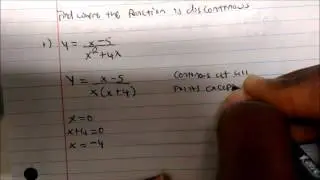 Find where the function is discontinuous
1) y = x-5 / x²+4x
y = x-5 / x(x+4)
Continous at all
points excep
x=0
x+4=0
x=-4